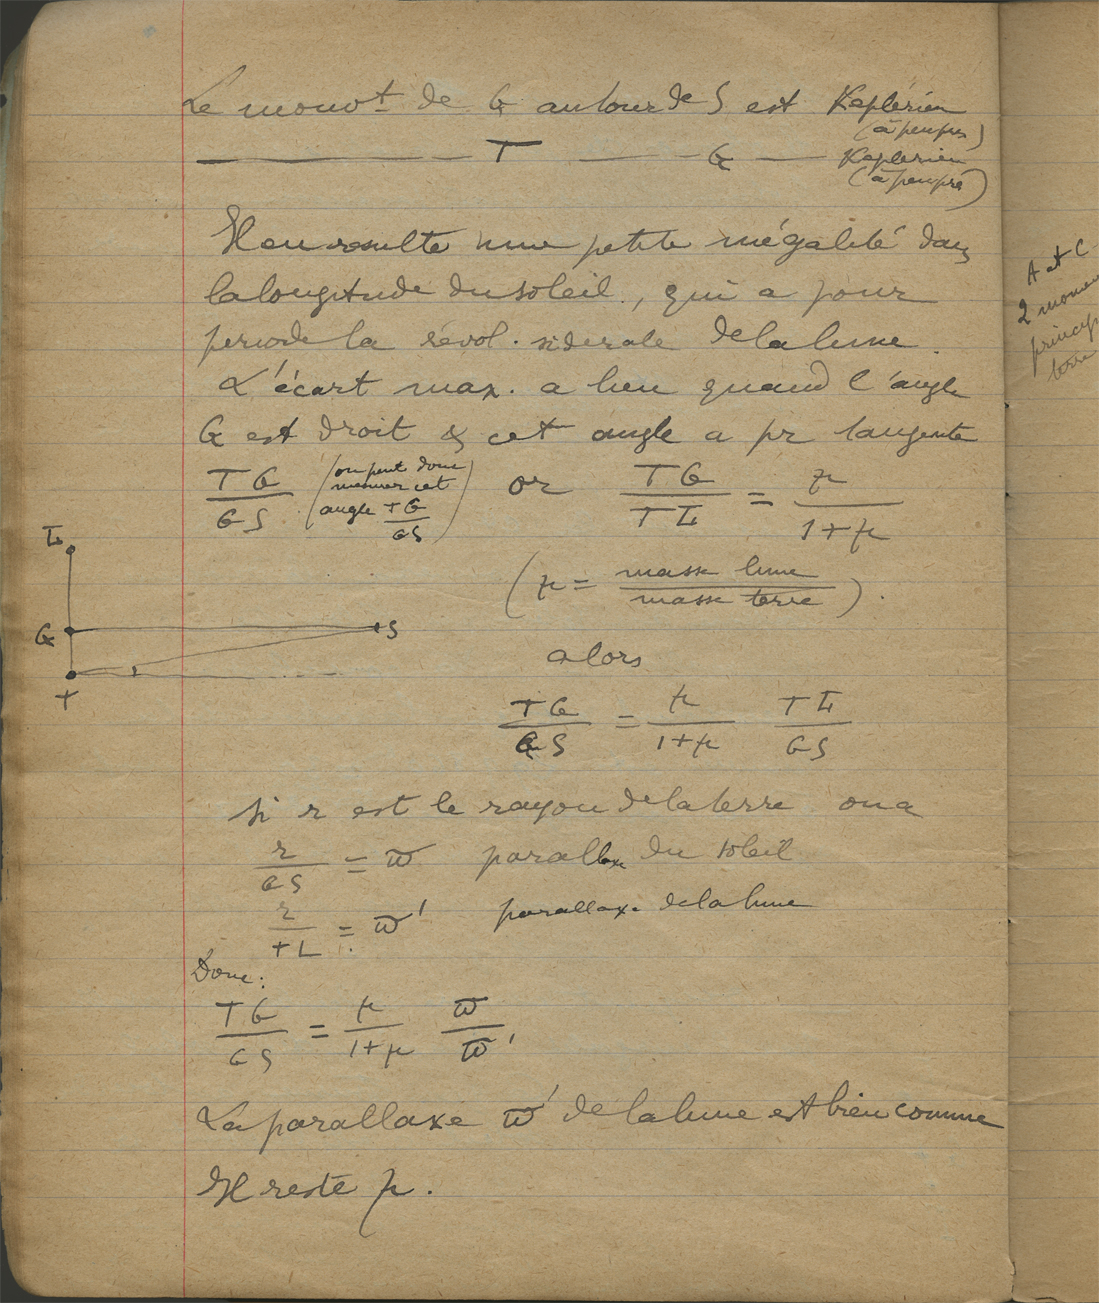 Le mouvt de G autour de S est Keplérien
(à peu près)
——— T ——— G — Keplerien
(à peu près)
Il en resulte une petite inégalité dans
la longitude du soleil, qui a pour
periode la révol. siderale de la lune.
L'écart max. a lieu quand l'angle
G est droit & cet angle a pr tangente
TG/GS (on peut donc mesurer cet angle TG/GS) or TG/TL = μ/(1+μ)
(μ = masse lune/masse terre).
L
G
S
T
alors
TG/GS = μ/(1+μ) TL/GS
si r est le rayon de la terre on a
r/GS = ϖ parallaxe du soleil
r/TL = ϖ' parallaxe de la lune
Donc:
TG/GS = μ/(1+μ) ϖ/ϖ'
La parallaxe ϖ' de la lune est bien connue
Il reste μ.
A et C
2 momen
princip
terre